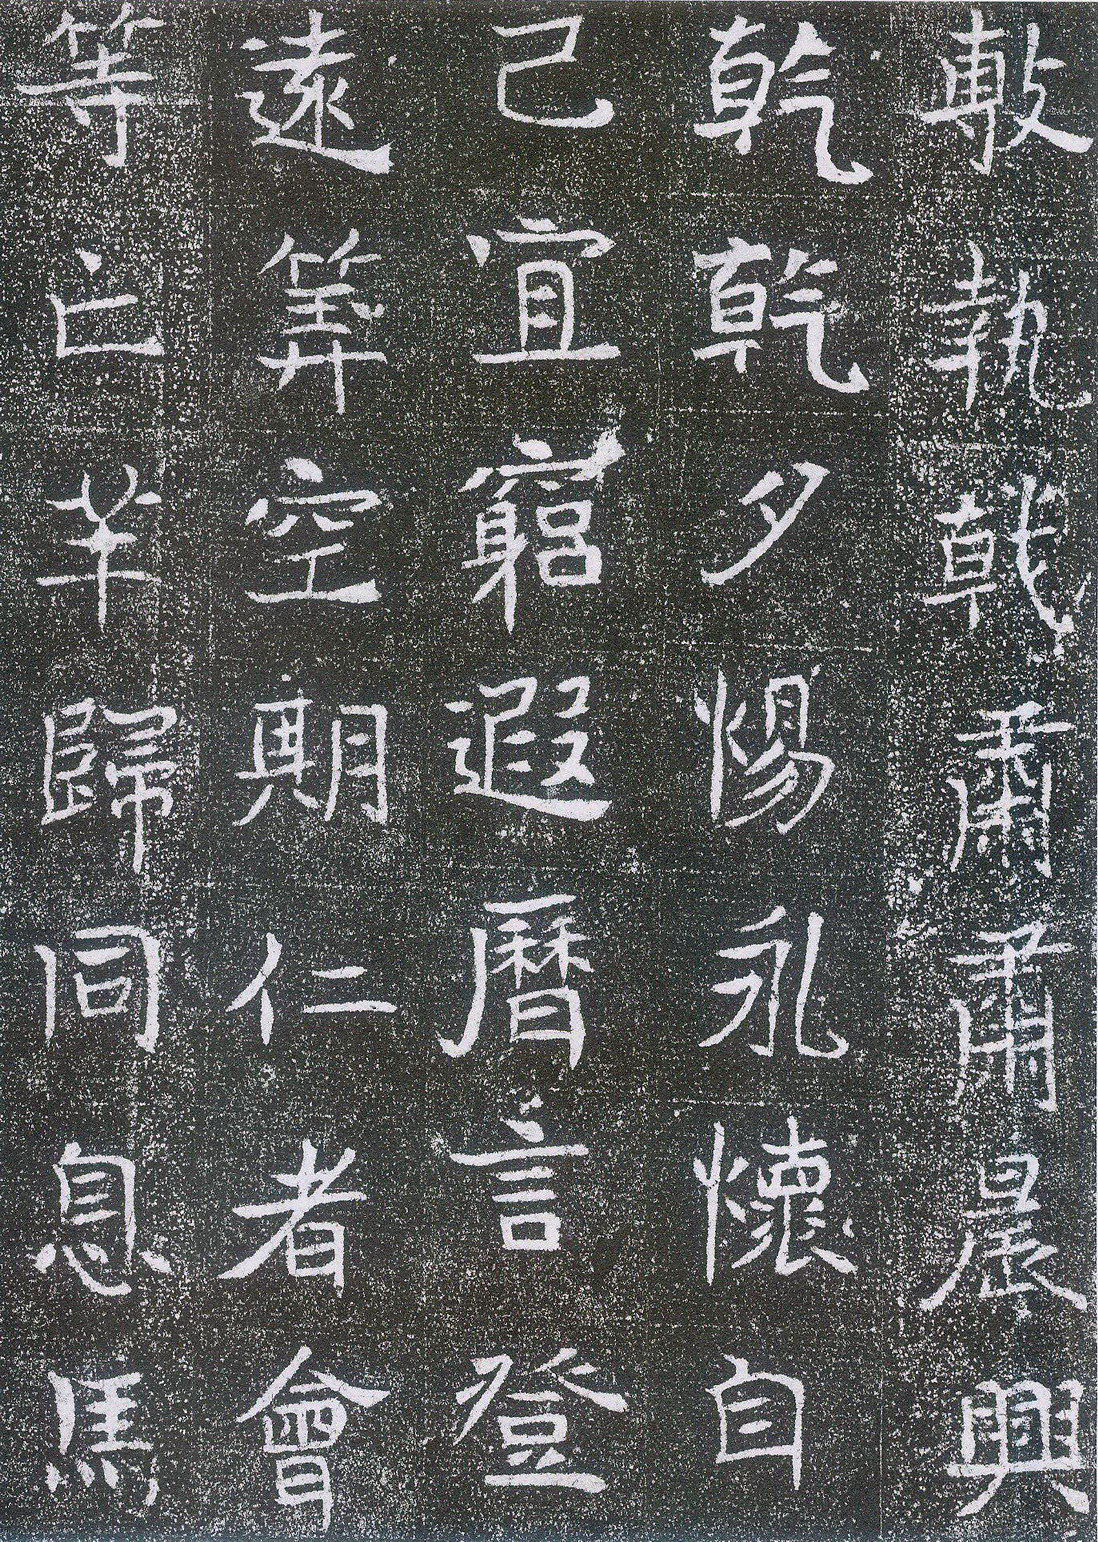 敷執戟肅肅晨興
乾乾夕惕永懷自
己宜窮遐曆言登
遠筭空期仁者會
等亡羊歸同息馬